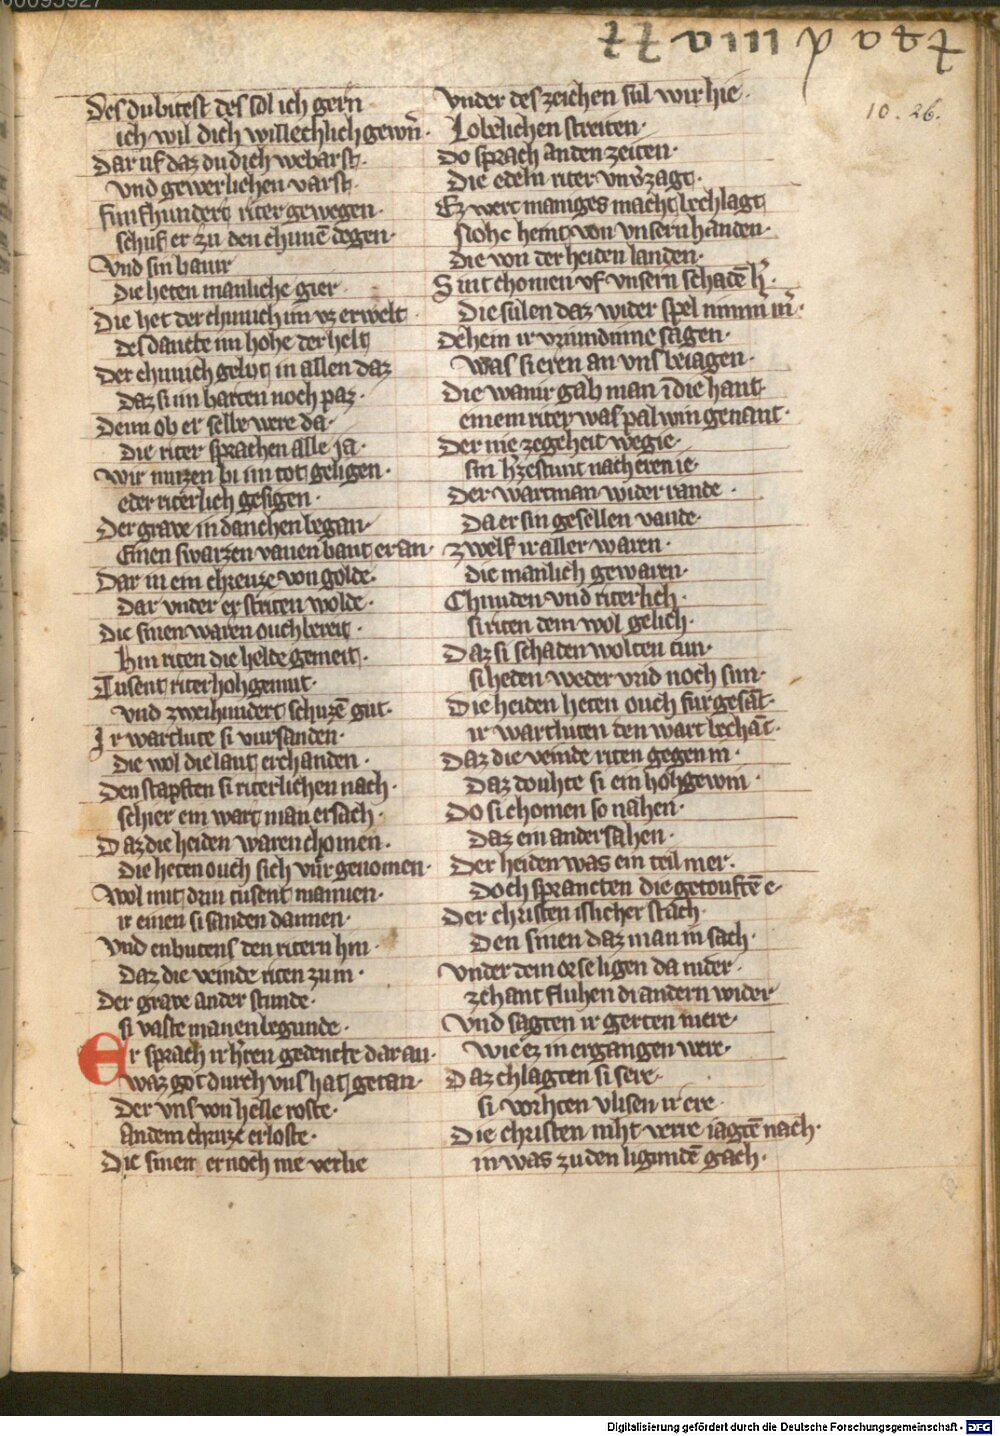 Des du bitest des sol ich gern
ich wil dich willechlich gewern̄·
Dar uf daz du dich webarst·
vnd gewerlichen varst·
funfhundert riter gewegen·
schuf er zu den chunē degen·
Vnd sin baner
die heten manliche gier
Die het der chunich im vz erwelt
des dancte im hohe der helt
Der chunich gebot in allen daz
daz si im harten noch paz·
Denn ob er selb were da·
die riter sprachen alle ja·
wir muzen bi im tot geligen·
oder riterlich gesigen·
Der grave in danchen began·
Einen swarzen vanen bant er an·
Dar in ein chreuze von golde·
Dar vnder er striten wolde·
Die sinen waren ouch bereit·
hin riten die helde gemeit·
Tusent riter hohgemut·
vnd zweihundert schuzē gut·
Ir wartlute si vursanden·
die wol die lant erchanden·
Den stapften si riterlichen nach·
schier ein wart man ersach·
Daz die heiden waren chomen·
die heten ouch sich vur genomen·
Wol mit drin tusent mannen·
ir einen si sanden dannen·
Vnd enbutens den ritern hin·
Daz die veinde riten zu im·
Der grave ander stunde·
si vaste manen begunde·
Er sprach ir h̄ren gedencke dar an·
waz got durch vns hat getan·
Der vns von helle roste·
an dem chruze erloste·
Die sinen er noch nie verlie
Vnder des zeichen sul wir hie·
Lobelichen striten·
Do sprach an den zeiten·
die edeln riter vnv̄zagt·
Ez wert maniges macht bechlagt
swie heint von vnsern handen·
die von der heiden landen·
Sint chomen vf vnsern schadē h̄·
Die sulen daz wider spel nimm̄ m̄·
Dehein ir vrundinne sagen·
Was si eren an vns beiagen·
Die wanir gab man ī die hant
einem riter was palwin genant·
Der nie zegeheit wegie·
sin h̄ze stunt nach eren ie·
Der wartman wider rande·
Da er sin gesellen vande·
zwelf ir aller waren·
die manlich gewaren·
Chunden vnd riterlich·
si riten dem wol gelich·
Daz si schaden wolten tun·
si heden weder vrid noch sun·
Die heiden heten ouch fur gesāt·
ir wartluten den wart bechāt·
Daz die veinde riten gegen in·
Daz douhte si ein hohgewin·
Do si chomen so nahen·
Daz ein ander sahen·
Der heiden was ein teil mer·
doch sprancten die getouftē e·
Der christen islicher stach·
Den sinen daz man in sach·
Vnder dem orse ligen da nider·
zehant fluhen di andern wider
Vnd sagten ir gerten mere·
wie ez in ergangen were·
Daz chlagten si sere·
si vorhten vlisen ir ere·
Die christen niht verre iagtē nach·
in was zu den ligundē gach·
10. 26.
Digitalisierung gefördert durch die Deutsche Forschungsgemeinschaft - DFG